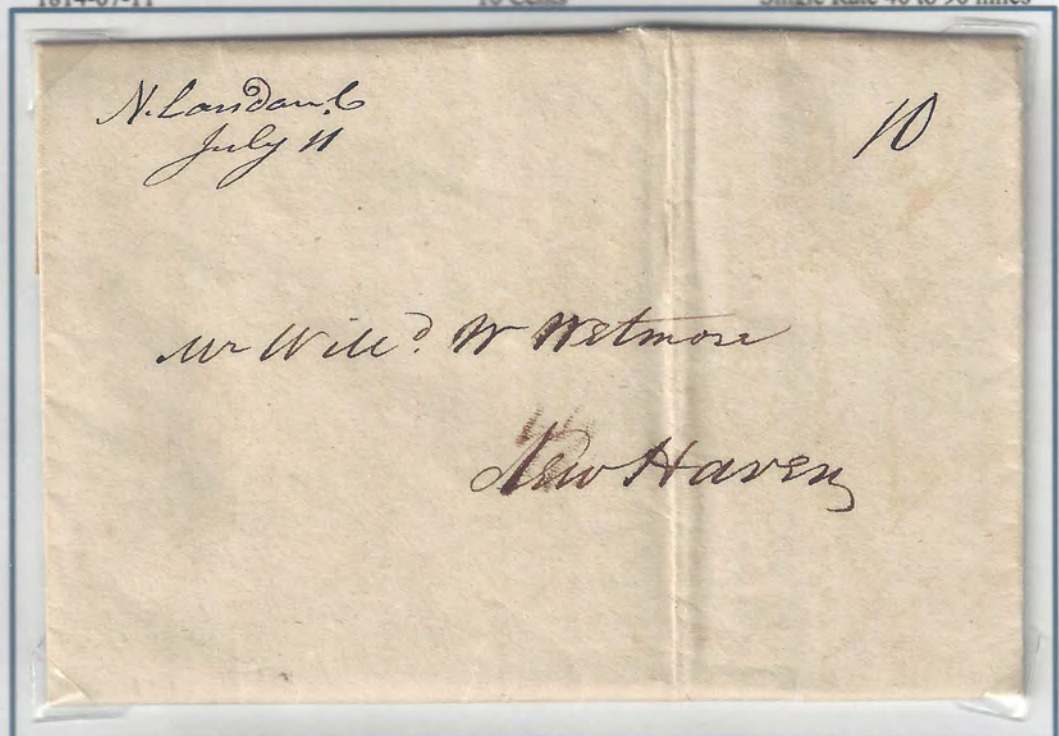 1814-07-11 10 Cents Single Rate 40 to 90 miles
N. London. C
July 11
10
Mr Will.d W Wetmore
New Haven